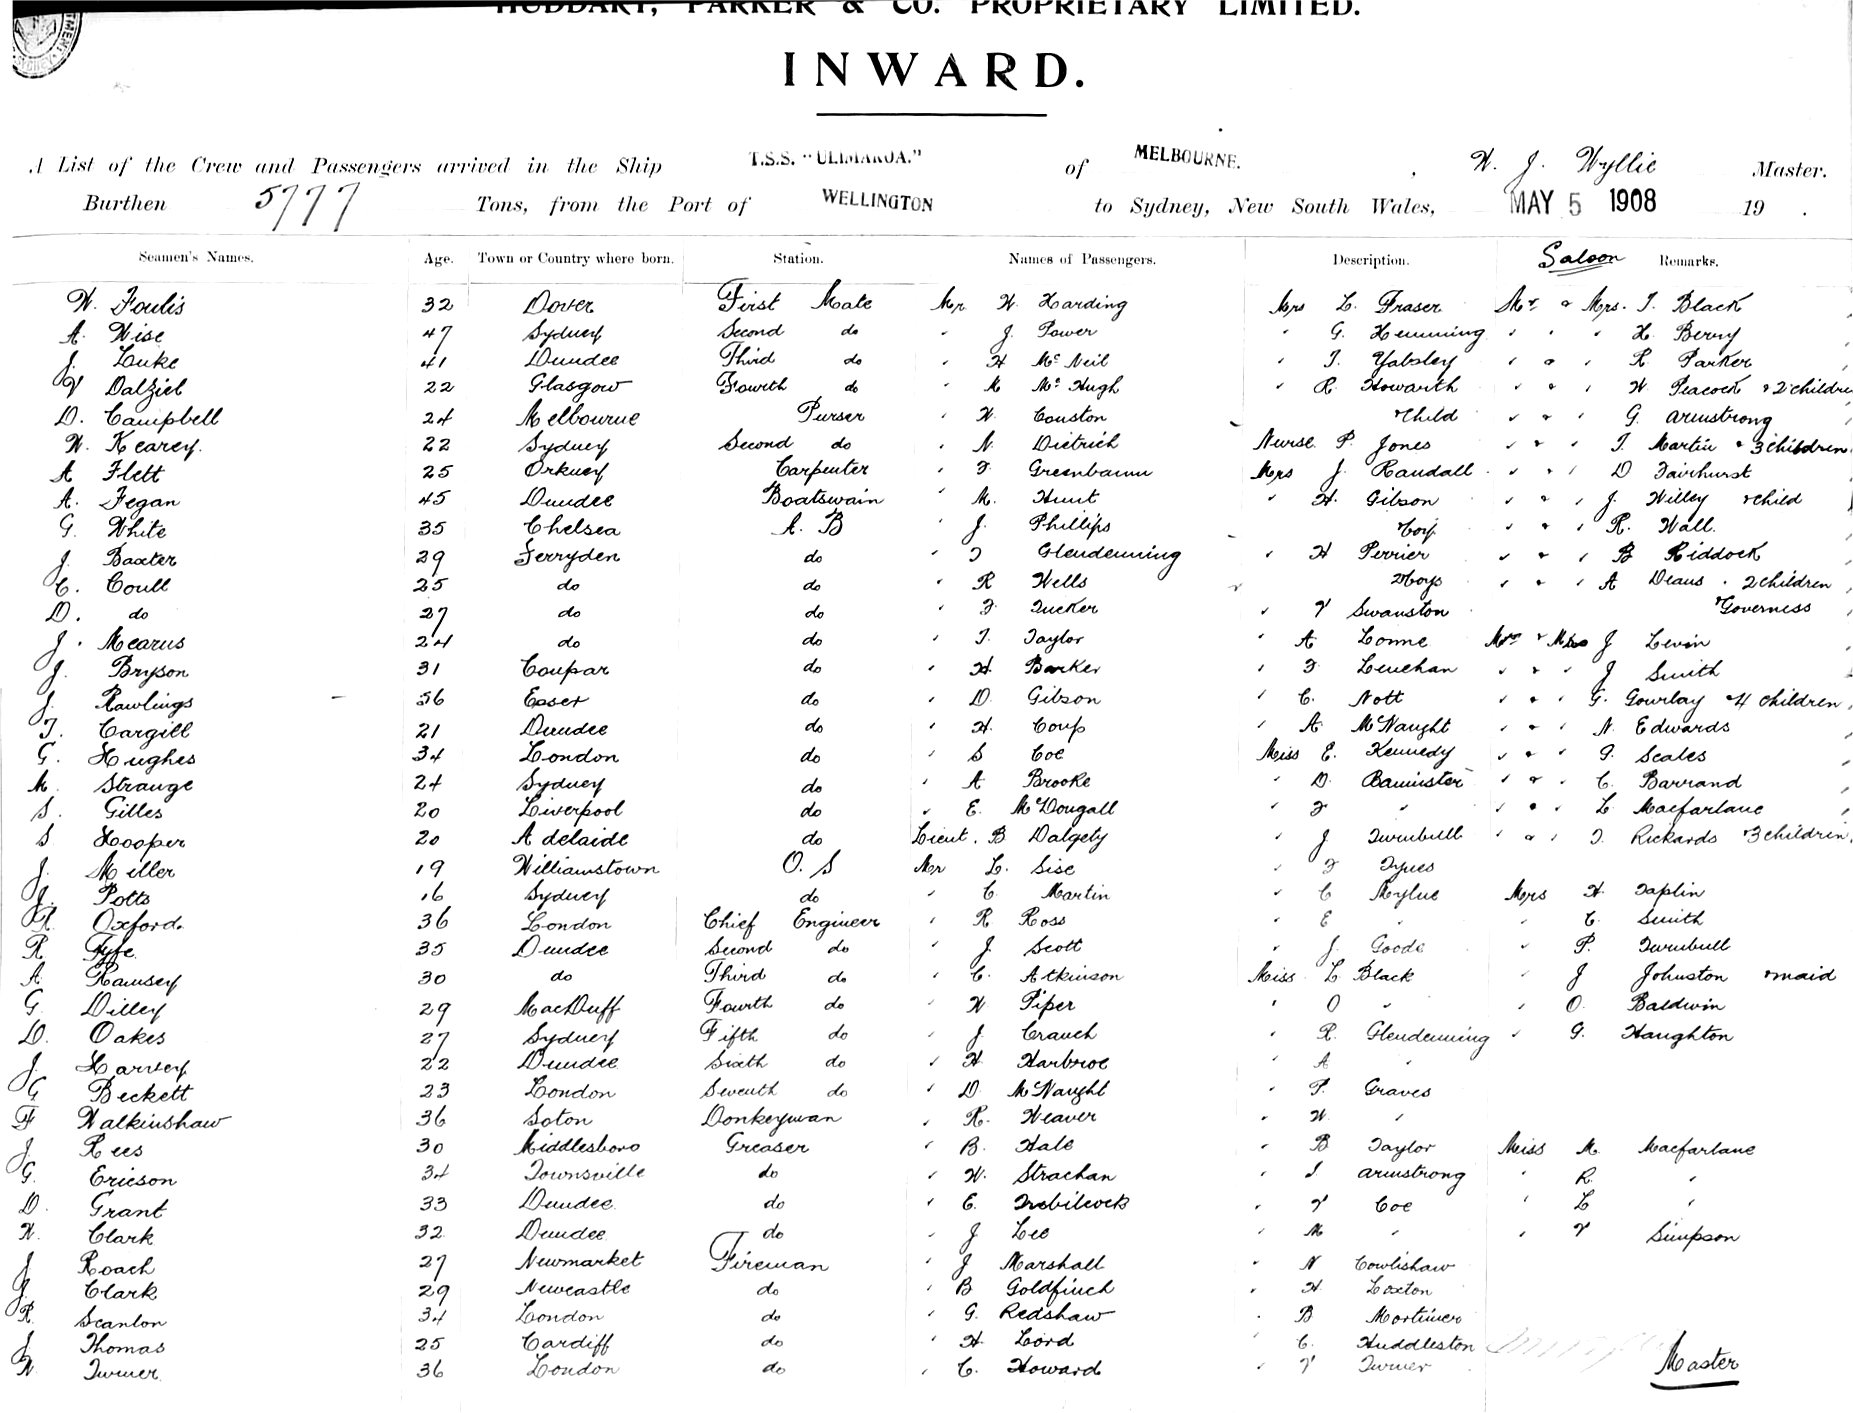 HUDDART, PARKER & CO. PROPRIETARY LIMITED.
INWARD.
A List of the Crew and Passengers arrived in the Ship T.S.S. "ULIMAROA." of MELBOURNE. W. J. Wyllie Master.
Burthen 5777 Tons, from the Port of WELLINGTON to Sydney, New South Wales, MAY 5 1908 19 .
Seamen's Names. Age. Town or Country where born. Station. Names of Passengers. Description. Saloon Remarks.
W. Foulis 32 Dover First Mate Mr W. Harding Mrs L. Fraser Mr & Mrs. T. Black
A. Wise 47 Sydney Second do " J. Power " G. Hemming " " " H. Berry
J. Luke 41 Dundee Third do " H McNeil " T. Yabsley " & " R Parker
V Dalziel 22 Glasgow Fourth do " M McHugh " R. Howarth " & " W Peacock & 2 childre
D. Campbell 24 Melbourne Purser " W. Couston & child " & " G. Armstrong
W. Kearey. 22 Sydney Second do " N Dietrich Nurse P. Jones " & " T. Martin & 3 children
A Flett 25 Orkney Carpenter " F. Greenbaum Mrs J. Randall " & " D Fairhurst
A. Fegan 45 Dundee Boatswain " M. Hunt " H. Gibson " & " J Willey & child
G. White 35 Chelsea A. B " J. Phillips & boy " & " R. Wall.
J. Baxter 29 Ferryden do " T Glendenning " H Perrier " & " B Riddock
C. Coull 25 do do " R Wells & boys " & " A Deans . 2 children
D. do 27 do do " F Tucker " V Swanston & Governess
J. Mearns 24 do do " T. Taylor " A Lonne Mr & Mrs J Levin
J. Bryson 31 Coupar do " H Barker " F Lenehan " & " J Smith
J. Rawlings 36 Essex do " D. Gibson " C. Nott " & " G. Gourlay & 4 children
T. Cargill 21 Dundee do " H. Coup " A. McNaught " & " N. Edwards
G. Hughes 34 London do " S Coe Miss E. Kennedy " & " G. Scales
M. Strange 24 Sydney do " A Brooke " D. Bannister " & " C. Barrand
S. Gilles 20 Liverpool do " E. McDougall " F " " & " L Macfarlane
S Hooper 20 Adelaide do Lieut. B Dalgety " J Turnbull " & " T. Rickards & 3 children
J. Miller 19 Williamstown O. S Mr L. Sise " F Tynes
J. Potts 16 Sydney do " C. Martin " C Meylue Mrs H. Taplin
R. Oxford. 36 London Chief Engineer " R Ross " E " " C. Smith
R Fyfe 35 Dundee Second do " J. Scott " J. Goode " P. Turnbull
A Ramsey 30 do Third do " C. Atkinson Miss L Black " J Johnston & maid
G. Dilley 29 MacDuff Fourth do " W Piper " O " " O. Baldwin
D. Oakes 27 Sydney Fifth do " J. Crauch " R. Glendenning " G. Haughton
J. Harvey 22 Dundee Sixth do " H Harbroe " A "
G Beckett 23 London Seventh do " D McNaught " P. Graves
F Walkinshaw 36 Soton Donkeyman " R. Weaver " W. "
J Rees 30 Middlesboro Greaser " B. Hale " B Taylor Miss M. Macfarlane
G. Ericson 34 Townsville do " W. Strachan " J. Armstrong " R. "
D. Grant 33 Dundee do " E. Trebilcock " V Coe " L "
W. Clark 32 Dundee do " J Lee " M " " V Simpson
J Roach 27 Newmarket Fireman " J Marshall " N Cowlishaw
J. Clark 29 Newcastle do " B Goldfinch " H. Loxton
R. Scanlon 34 London do " G. Redshaw " B Mortimer
J Thomas 25 Cardiff do " H Lord " C. Huddleston
W. Turner. 36 London do " C. Howard " V Turner Master